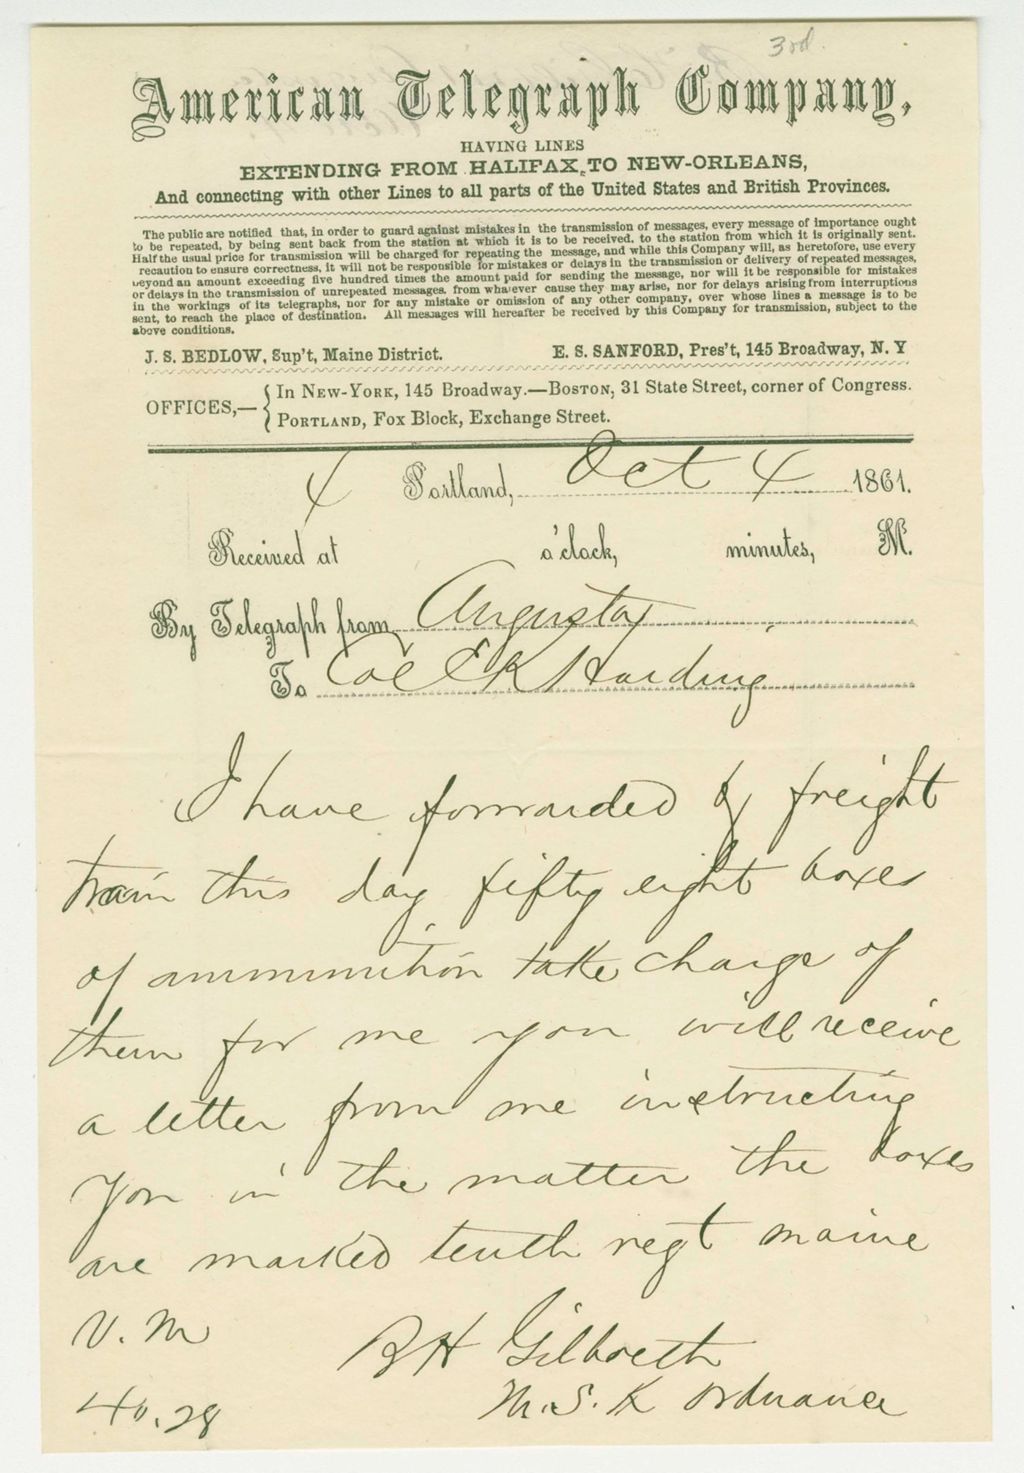 3rd.
American Telegraph Company,
HAVING LINES
EXTENDING FROM HALIFAX TO NEW-ORLEANS,
And connecting with other Lines to all parts of the United States and British Provinces.
The public are notified that, in order to guard against mistakes in the transmission of messages, every message of importance ought
to be repeated, by being sent back from the station at which it is to be received, to the station from which it is originally sent.
Half the usual price for transmission will be charged for repeating the message, and while this Company will, as heretofore, use every
recaution to ensure correctness, it will not be responsible for mistakes or delays in the transmission or delivery of repeated messages,
beyond an amount exceeding five hundred times the amount paid for sending the message, nor will it be responsible for mistakes
or delays in the transmission of unrepeated messages, from whatever cause they may arise, nor for delays arising from interruptions
in the workings of its telegraphs, nor for any mistake or omission of any other company, over whose lines a message is to be
sent, to reach the place of destination. All messages will hereafter be received by this Company for transmission, subject to the
above conditions.
J. S. BEDLOW, Sup't, Maine District. E. S. SANFORD, Pres't, 145 Broadway, N. Y
OFFICES,— { In NEW-YORK, 145 Broadway.—BOSTON, 31 State Street, corner of Congress.
PORTLAND, Fox Block, Exchange Street.
4 Portland, Oct 4 1861.
Received at o'clock, minutes, M.
By Telegraph from Augusta
To Col E K Harding
I have forwarded by freight
train this day fifty eight boxes
of ammunition take charge of
them for me you will receive
a letter from me instructing
you in the matter the boxes
are marked tenth regt maine
V. M
B H Gilbreth
40.28
M. S. K Ordnance